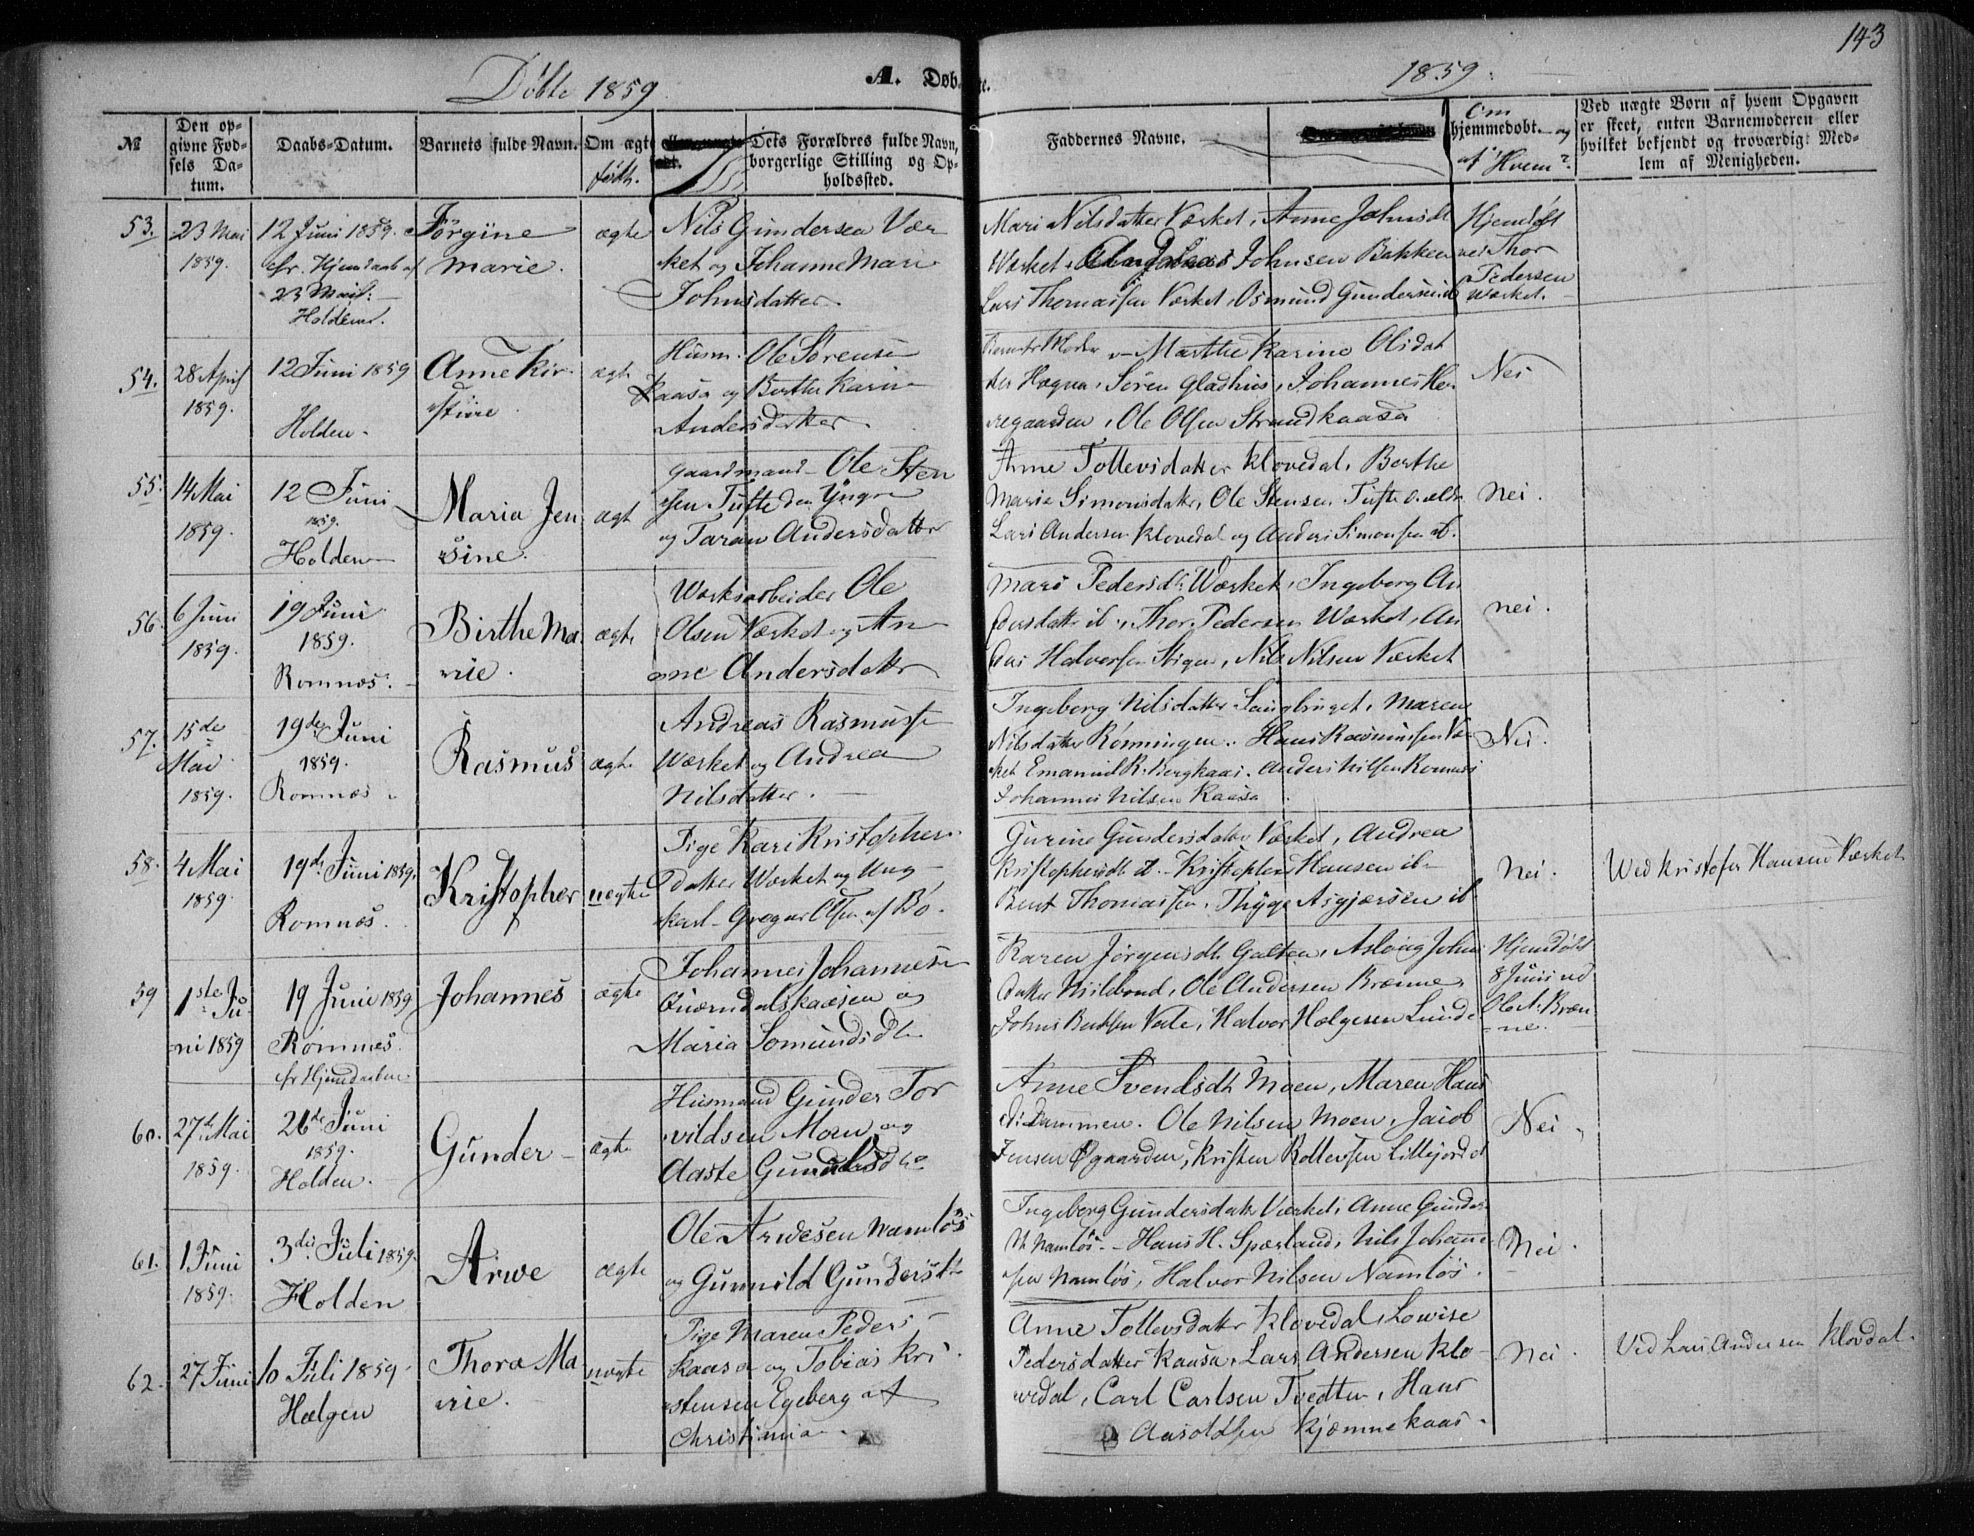 143
Döbte 1859.
A. Døb
te.
1859.
№
Den op-
givne Fød-
sels Da-
tum.
Daabs-Datum.
Barnets fulde Navn.
Om ægte
født.
Dets Forældres fulde Navn,
borgerlige Stilling og Op-
holdssted.
Faddernes Navne.
Om
hjemmedøbt. og
af Hvem?
Ved uægte Børn af hvem Opgaven
er skeet, enten Barnemoderen eller
hvilket bekjendt og troværdigt Med-
lem af Menigheden.
53.
23 Mai
1859.
12 Juni 1859.
cfr. Hjemdaab af
23 Mai.
Holden.
Jörgine
Marie.
ægte
Nils Gundersen Vær
ket og Johanne Mari
Johnsdatter.
Mari Nilsdatter Værket, Anne Johnsdt
Værket, Johnsen Bakken
Lars Thomassen Værket, Osmund Gundersen ib
Hjemdöbt
ved Thor
Pedersen
Værket.
54.
28 April
1859.
12 Juni 1859
Holden.
Anne Kir-
stine
ægte
Husm. Ole Sørensen
Kaasa og Berthe Karin
Andersdatter
Barnets Moder Marthe Karine Olsdat
ter Hægna, Søren Gladhus, Johannes Her
regaarden, Ole Olsen Strandkaasa
Nei
55.
14 Mai
1859.
12 Juni
1859.
Holden
Maria Jen
sine.
ægt
Gaardmand Ole Sten
sen Tufte den Yngre
og Taran Andersdatter
Anne Tollevsdatter Klovedal, Berthe
Marie Simonsdatr, Ole Stensen Tufte d. ældr
Lars Andersen Klovedal og Anders Simonsen ib.
Nei.
56.
6 Juni
1859.
19 Juni
1859.
Romnæs.
Birthe Ma
rie.
ægte
Værksarbeider Ole
Olsen Værket og An
ne Andersdatter
Mari Pedersdtr Værket, Ingeborg An
dersdatter ib, Thor Pedersen Værket, An
Halvorsen Stigen, Nils Nilsen Værket
Nei.
57.
15de
Mai
1859.
19de Juni
1859.
Romnæs
Rasmus
ægte
Andreas Rasmussen
Værket og Andrea
Nilsdatter.
Ingeborg Nilsdatter Saugbruget, Maren
Nilsdatter Rönningen. Hans Rasmussen Vær
ket Emanuel R. Bergkaas. Anders Nilsen Romnæs
Johannes Nilsen Kaasa
Nei.
58.
4 Mai
1859.
19de Juni 1859.
Romnæs.
Kristopher
uægte
Pige Kari Kristophers
datter Værket og Ung
karl Gregar Olsen af Bø.
Gurine Gundersdatter Værket, Andrea
Kristophersdt ib. Kristopher Hansen ib
Bent Thomassen, Thyge Asgjærsen ib
Nei.
Ved Kristofer Hansen Værket
59
1ste Ju
ni 1859
19 Juni 1859
Romnæs.
cfr Hjemdaaben
Johannes
ægte
Johannes Johannesen
Qværndalskaasen og
Maria Somundsdtr
Karen Jörgensdt Galten, Aslaug Johns
datter Hildbond, Ole Andersen Brænne,
Johns Vale, Halvor Helgesen Lunde
Hjemdöbt
8 Juni ved
Ole A. Bræn
ne.
60.
27de Mai
1859.
26de Juni
1859.
Holden.
Gunder
ægte
Husmand Gunder Tor
vildsen Moen og
Aaste Gundersdtr
Anne Svendsdtr Moen, Maren Hans
dt Dammen. Ole Nilsen Moen, Jacob
Jensen Øgaarden, Kristen Rollevsen Lillejordet
Nei.
61.
1 Juni
1859.
3die Juli 1859.
Holden
Arwe
ægte
Ole Arwesen Namløs
og Gunnild Gundersdt
Ingeborg Gundersdatr Værket, Anne Gunder
dt Namløs. Hans H. Spærland, Nils Johanne
sen Namløs, Halvor Nilsen Namløs.
Nei.
62.
27 Juni
10 Juli 1859
Hælgen
Thora Ma
rie.
uægte
Pige Maren Peders
Kaasa og Tobias Kri
stensen Egeberg af
Christiania.
Anne Tollevsdatter Klovedal, Lowise
Pedersdatter Kaasa, Lars Andersen Klo
vedal, Carl Carlsen Tvedten, Hans
Aasoldsen Kjæmnekaas.
Nei.
Ved Lars Andersen Klovdal.